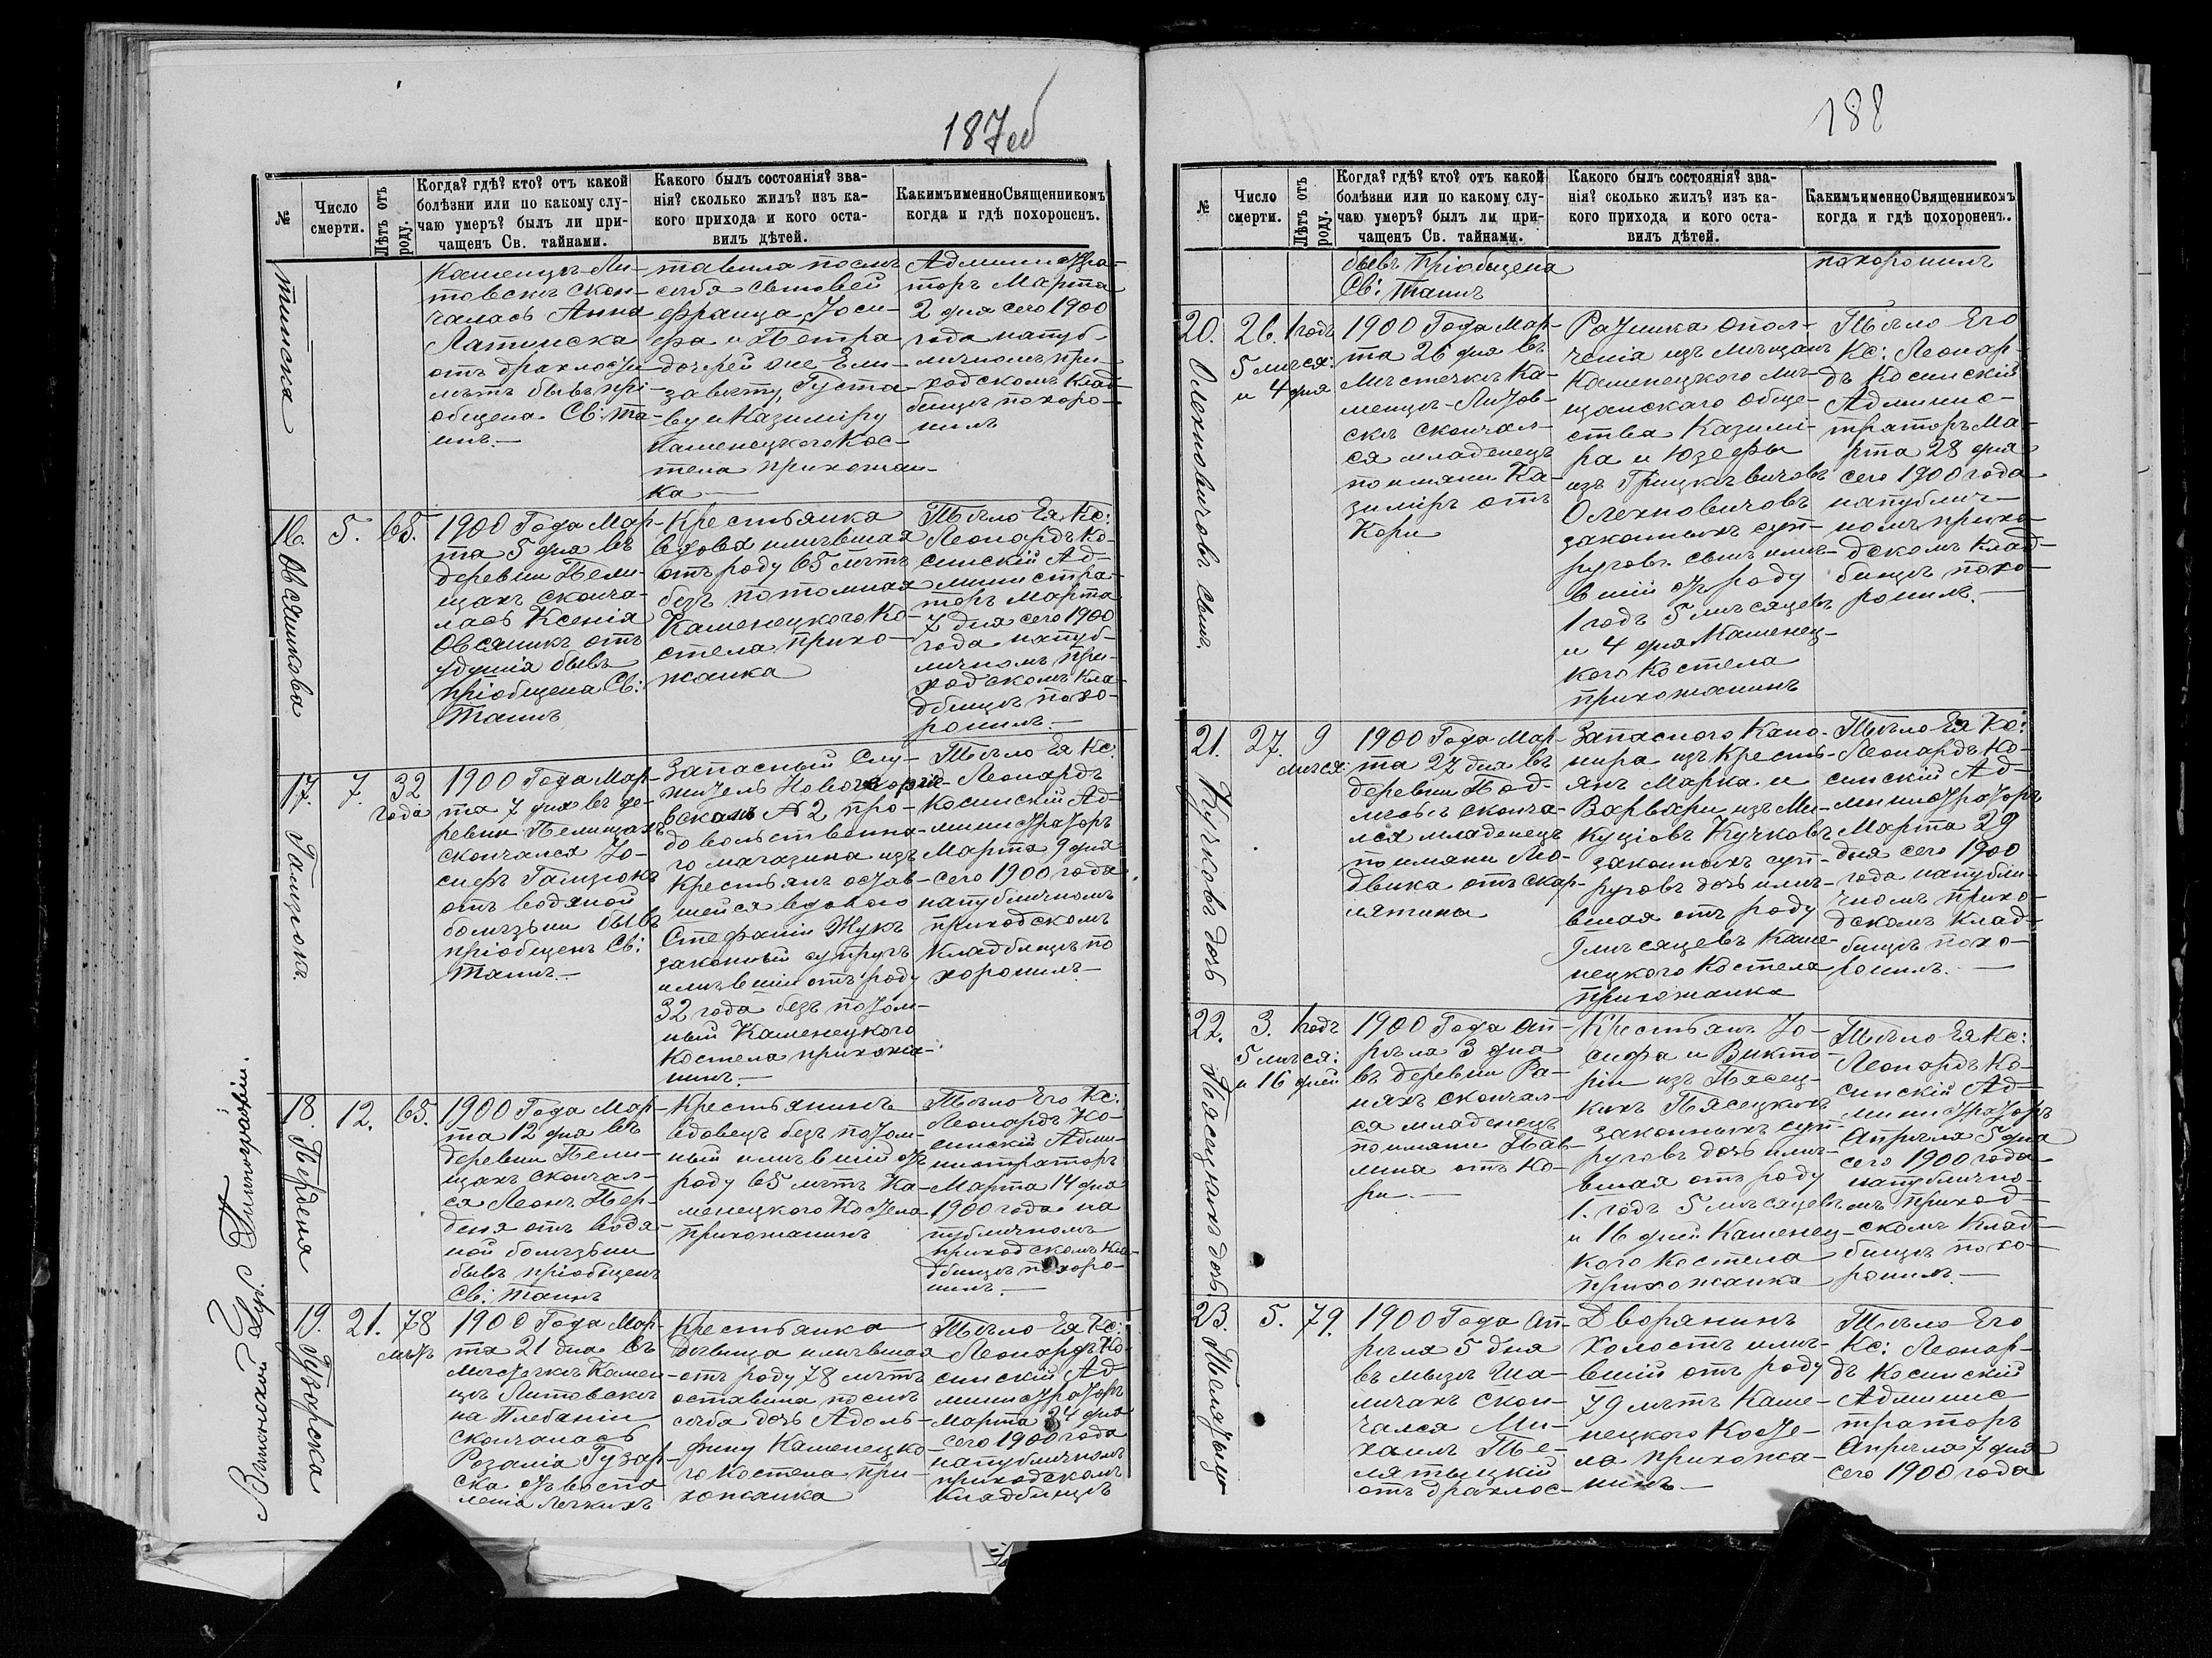 187об
№
Число смерти.
Лѣтъ отъ роду.
Когда? гдѣ? кто? отъ какой
болѣзни или по какому слу-
чаю умеръ? былъ ли при-
чащенъ Св. тайнами.
Какого былъ состоянія? зва-
нія? сколько жилъ? изъ ка-
кого прихода и кого оста-
вилъ дѣтей.
Какимъ именно Священникомъ
когда и гдѣ похороненъ.
тинска
Каменцѣ-Ли-
товскѣ скон-
чалась Анна
Латинска
отъ драхлости
лѣтъ бывъ прі-
общена Св: та-
инъ.—
тавила послѣ
себя сыновей
Франца, Іоси-
фа и Петра
дочерей оне Ели-
завету, Густа-
ву и Казиміру
Каменецкого Кос-
тела прихожан-
ка—
Администра-
торъ Марта
2 дня сего 1900
года на пуб-
личномъ при-
ходскомъ Клад-
бищѣ похоро-
нилъ
16.
Овсяникова
5.
65.
1900 Года Мар-
та 5 дня въ
деревни Пели-
щахъ сконча-
лась Ксенія
Овсяникъ отъ
удушія бывъ
пріобщена Св:
Таинъ
Крестьянка
вдова имѣвшая
отъ роду 65 лѣтъ
безъ потомная
Каменецкого Ко-
стела прихо-
жанка
Тѣло Ея Кс:
Леонардъ Ко-
синскій Ад-
министра-
торъ Марта
7 дня сего 1900
года на пуб-
личномъ при-
ходскомъ Кла-
дбищѣ похо-
ронилъ.—
17.
Гамзюкъ
7.
32
года
1900 Года Мар-
та 7 дня въ де-
ревни Пелищахъ
скончался Іо-
сифъ Гамзюкъ
отъ водяной
болѣзни бывъ
пріобщенъ Св:
Таинъ.—
Запасный Слу-
житель Новогеоргіе-
вскаго № 2 про-
довольственна-
го магазина изъ
Крестьянъ остав-
шейся вдовою
Стефаніи Жукъ
законный супругъ
имѣвшій отъ роду
32 года безъ потом-
ный Каменецкого
Костела прихожа-
нинъ.—
Тѣло Ея Кс:
Леонардъ
Косинскій Ад-
министраторъ
Марта 9 дня
сего 1900 года
на публичномъ
приходскомъ
Кладбищѣ по
хоронилъ—
18.
Пердена
12.
65.
1900 Года Мар-
та 12 дня въ
деревни Пели-
щахъ скончал-
ся Леонъ Пер-
деня отъ водя-
ной болѣзни
бывъ пріобщенъ
Св: Таинъ
Крестьянинъ
вдовецъ безъ потом-
ный имѣвшій отъ
роду 65 лѣтъ Ка-
менецкого Костела
прихожанинъ
Тѣло Его Кс:
Леонардъ Ко-
синскій Адми-
нистраторъ
Марта 14 дня
1900 года на
публичномъ
приходскомъ Кла-
дбищѣ похоро-
нилъ.—
19.
Гузарска
21.
78
лѣтъ
1900 Года Мар-
та 21 дня въ
мѣстечкѣ Камен-
цѣ Литовскѣ
на Плебаніи
скончалась
Розалія Гузар-
ска отъ воспа
ленія легкихъ
Крестьянка
Дѣвица имѣвшая
отъ роду 78 лѣтъ
оставила послѣ
себя дочь Адоль-
фину Каменецко-
го Костела при-
хожанка
Тѣло Ея Кс:
Леонардъ Ко-
синскій Ад
министраторъ
Марта 24 дня
сего 1900 года
на публичномъ
приходскомъ
Кладбищѣ
Виленская Губ. Типографія.
188
№
Число смерти.
Лѣтъ отъ роду.
Когда? гдѣ? кто? отъ какой
болѣзни или по какому слу-
чаю умеръ? былъ ли при-
чащенъ Св. тайнами.
Какого былъ состоянія? зва-
нія? сколько жилъ? изъ ка-
кого прихода и кого оста-
вилъ дѣтей.
Какимъ именно Священникомъ
когда и гдѣ похороненъ.
бывъ Пріобщена
Св: Таинъ
похоронилъ
20.
Олехновичовъ сынъ.
26.
1 годъ
5 мѣся:
и 4 дня
1900 Года Мар-
та 26 дня въ
Мѣстечкѣ Ка-
менцѣ-Литов-
скѣ скончал-
ся младенецъ
по имяни Ка-
зиміръ отъ
Кори
Ратника опол-
ченія изъ мѣщанъ
Каменецкого мѣ-
щанскаго обще-
ства Казими-
ра и Юзефы
изъ Грицкевичовъ
Олехновичовъ
законныхъ суп-
руговъ сынъ имѣ-
вшій отъ роду
1 годъ 5 мѣсяцевъ
и 4 дня Каменец-
кого Костела
прихожанинъ
Тѣло Его
Кс: Леонар-
дъ Косинскій
Админис-
траторъ Ма-
рта 28 дня
сего 1900 года
на публич-
номъ прихо-
дскомъ Клад-
бищѣ похо-
ронилъ.—
21.
Кучковъ дочь
27.
9
мѣся:
1900 Года Мар-
та 27 дня въ
деревни Под-
лесьѣ сконча-
лся младенецъ
по имяни Лю-
двика отъ скар-
лятины
Запасного Кано-
нира изъ Кресть-
янъ Марка и
Варвары изъ Ми-
куціовъ Кучковъ
законныхъ суп-
руговъ дочь имѣ-
вшая отъ роду
9 мѣсяцевъ Каме-
нецкого Костела
прихожанка
Тѣло Ея Кс:
Леонардъ Ко-
синскій Ад-
министраторъ
Марта 29
дня сего 1900
года на публи-
чномъ прихо-
дскомъ Клад-
бищѣ похо-
ронилъ.—
22.
Пясецкихъ дочь.
3.
1 годъ
5 мѣся:
и 16 дней
1900 Года Ап-
рѣля 3 дна
въ деревни Ра-
няхъ скончал-
ся младенецъ
по имяни Пав-
лина отъ Ко-
ри.—
Крестьянъ Іо-
сифа и Викто-
ріи изъ Пясец-
кихъ Пясецкихъ
законныхъ суп-
руговъ дочь имѣ-
вшая отъ роду
1. годъ 5 мѣсяцевъ
и 16 дней Каменец-
кого Костела
прихожанка
Тѣло Ея Кс:
Леонардъ Ко-
синскій Ад-
министраторъ
Апрѣля 5 дна
сего 1900 года
на публично-
мъ приход-
скомъ Клад-
бищѣ похо-
ронилъ.—
23.
5.
79.
1900 Года Ап-
рѣля 5 дня
въ мызѣ Ша-
личахъ скон-
чался Ми-
хаилъ Те-
лятыцкій
отъ драхлос-
Дворянинъ
Холостъ имѣ-
вшій отъ роду
79 лѣтъ Каме-
нецкого Косте-
ла прихожа-
нинъ.—
Тѣло Его
Кс: Леонар-
дъ Косинскій
Админис
траторъ
Апрѣля 7 дня
сего 1900 года